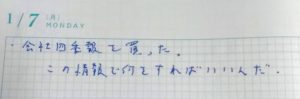 1/7 [月]
MONDAY
・会社四季報を買った。
この情報で何をすればいいんだ。